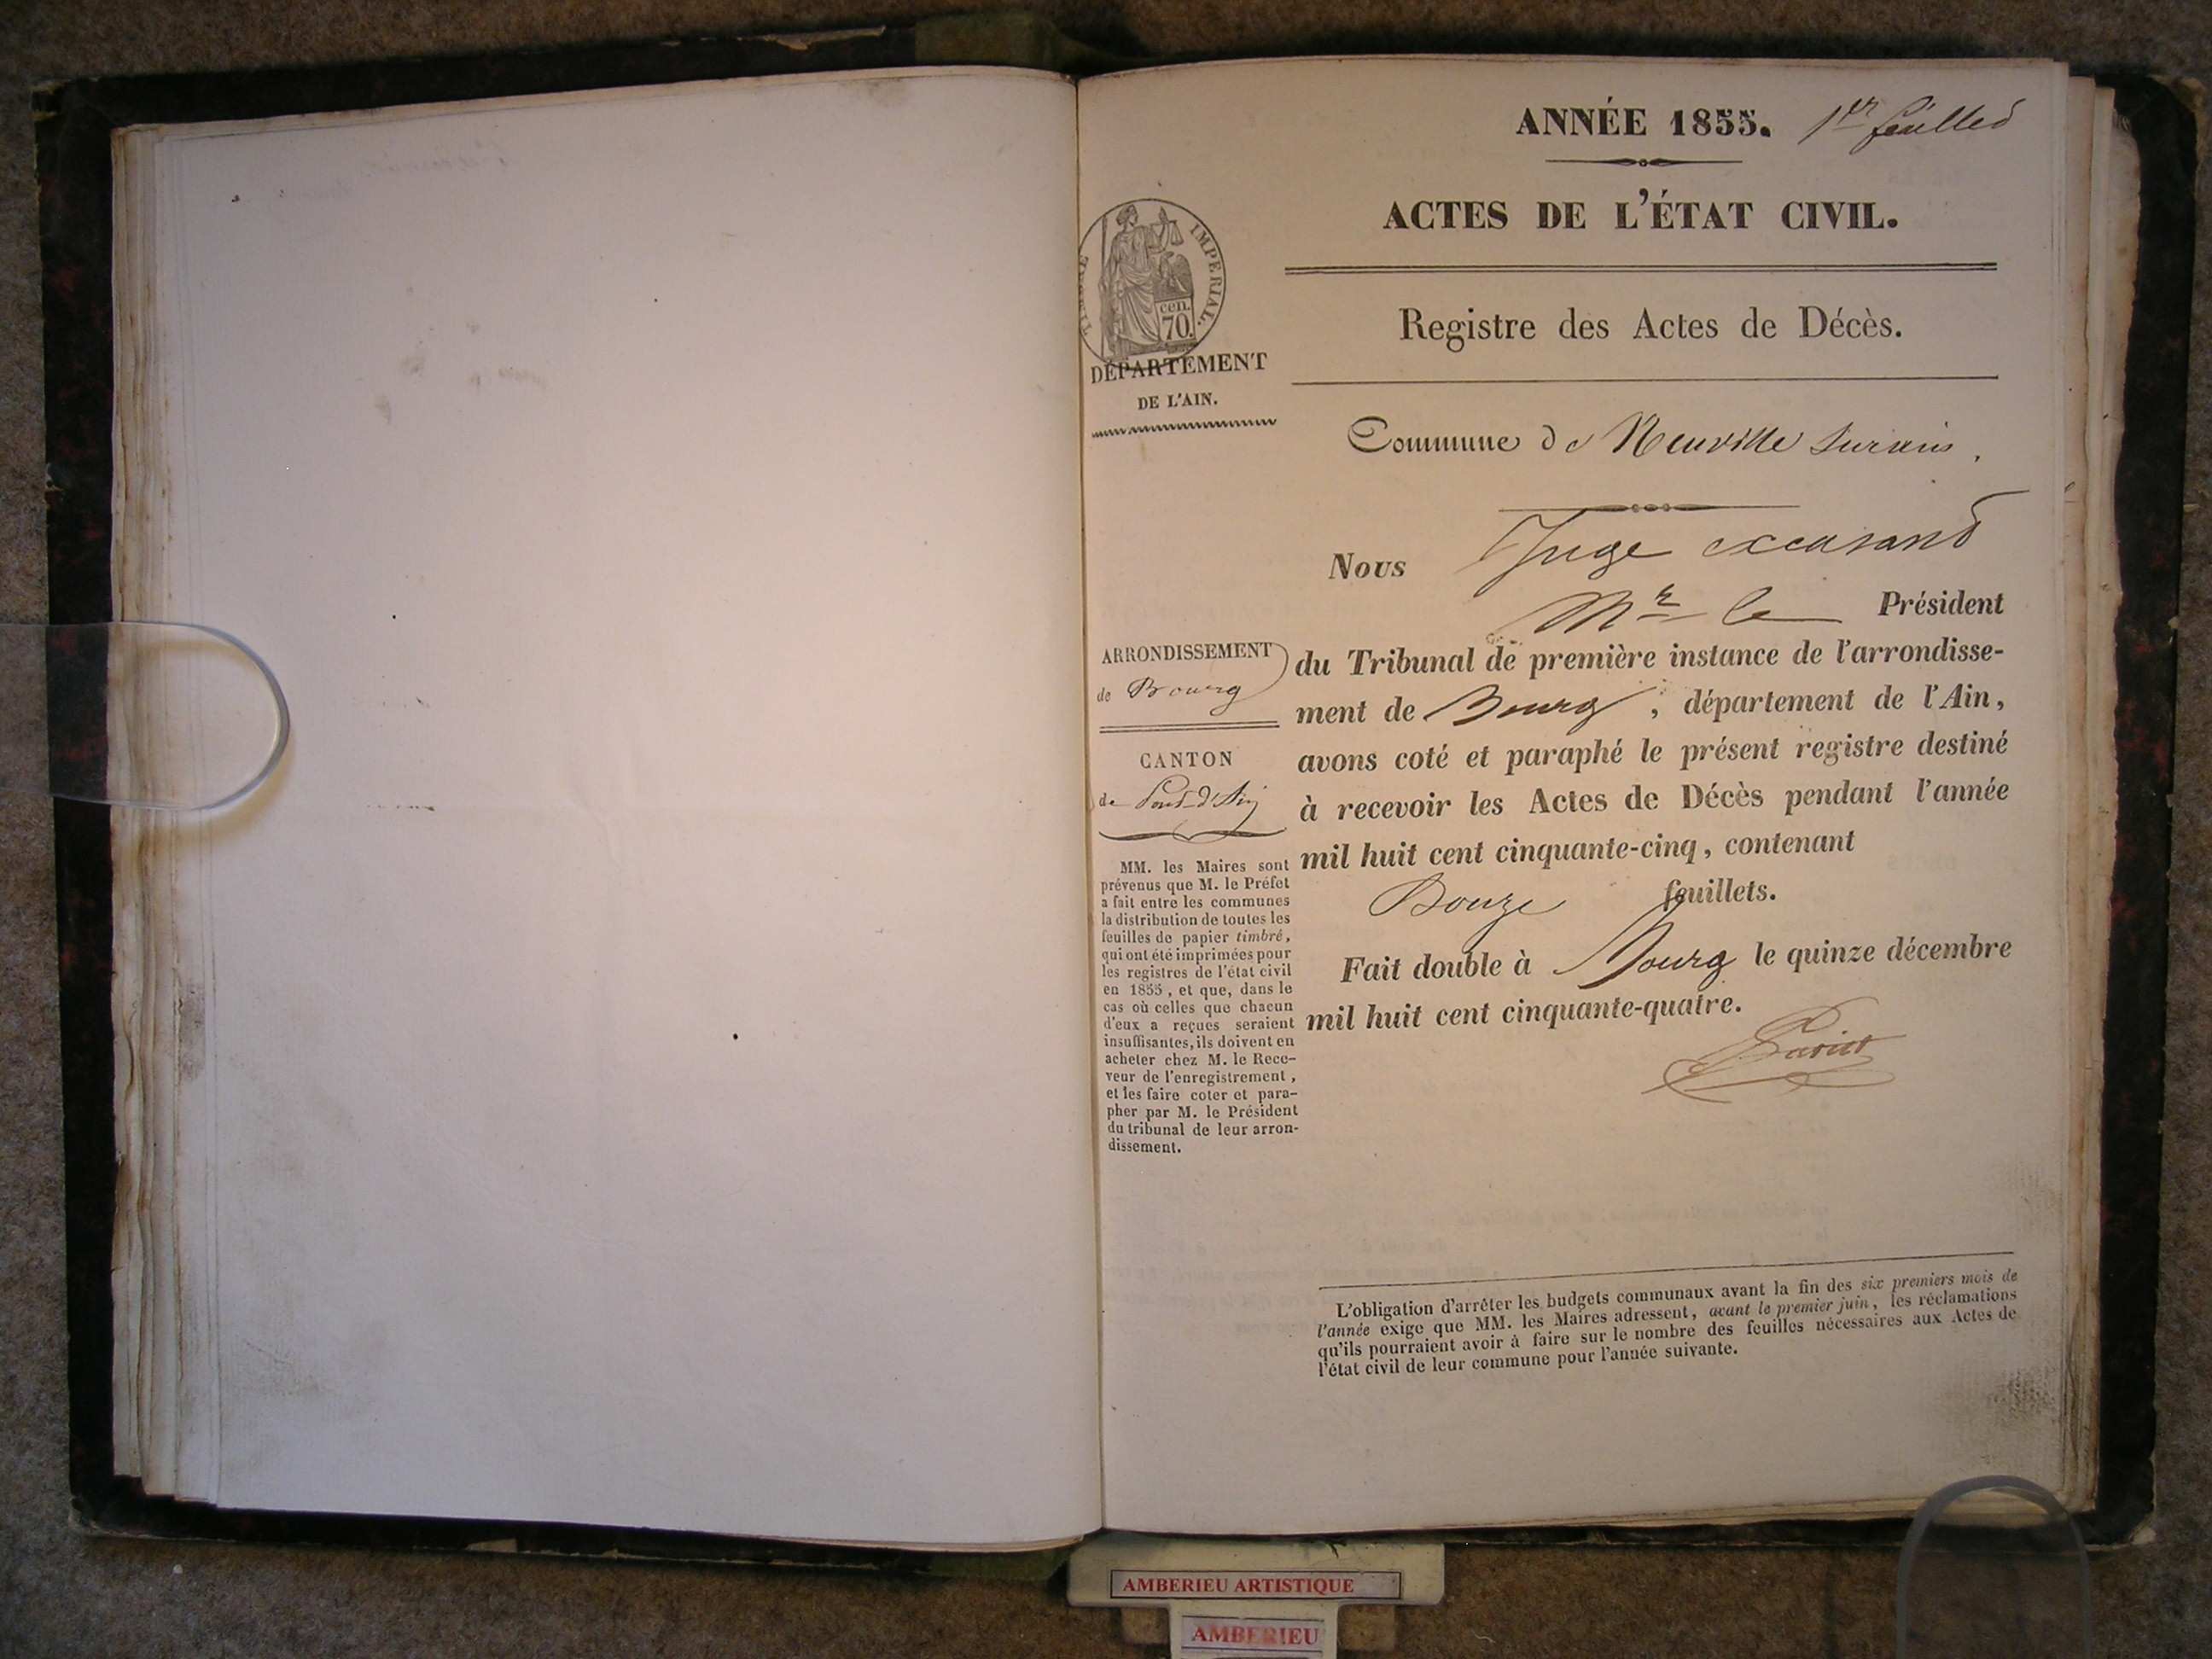 ANNÉE 1855. 1er feuillet
ACTES DE L'ÉTAT CIVIL.
TIMBRE IMPERIAL.
cen.
70.
Registre des Actes de Décès.
DÉPARTEMENT
DE L'AIN.
Commune de Neuville sur ain.
Nous Juge excusant
Mr le Président
du Tribunal de première instance de l'arrondisse-
ment de Bourg, département de l'Ain,
avons coté et paraphé le présent registre destiné
à recevoir les Actes de Décès pendant l'année
mil huit cent cinquante-cinq, contenant
Douze feuillets.
Fait double à Bourg le quinze décembre
mil huit cent cinquante-quatre.
ARRONDISSEMENT
de Bourg
CANTON
de Pont-d'Ain
MM. les Maires sont
prévenus que M. le Préfet
a fait entre les communes
la distribution de toutes les
feuilles de papier timbré,
qui ont été imprimées pour
les registres de l'état civil
en 1855, et que, dans le
cas où celles que chacun
d'eux a reçues seraient
insuffisantes, ils doivent en
acheter chez M. le Rece-
veur de l'enregistrement,
et les faire coter et para-
pher par M. le Président
du tribunal de leur arron-
dissement.
L'obligation d'arrêter les budgets communaux avant la fin des six premiers mois de
l'année exige que MM. les Maires adressent, avant le premier juin, les réclamations
qu'ils pourraient avoir à faire sur le nombre des feuilles nécessaires aux Actes de
l'état civil de leur commune pour l'année suivante.
AMBERIEU ARTISTIQUE
AMBERIEU